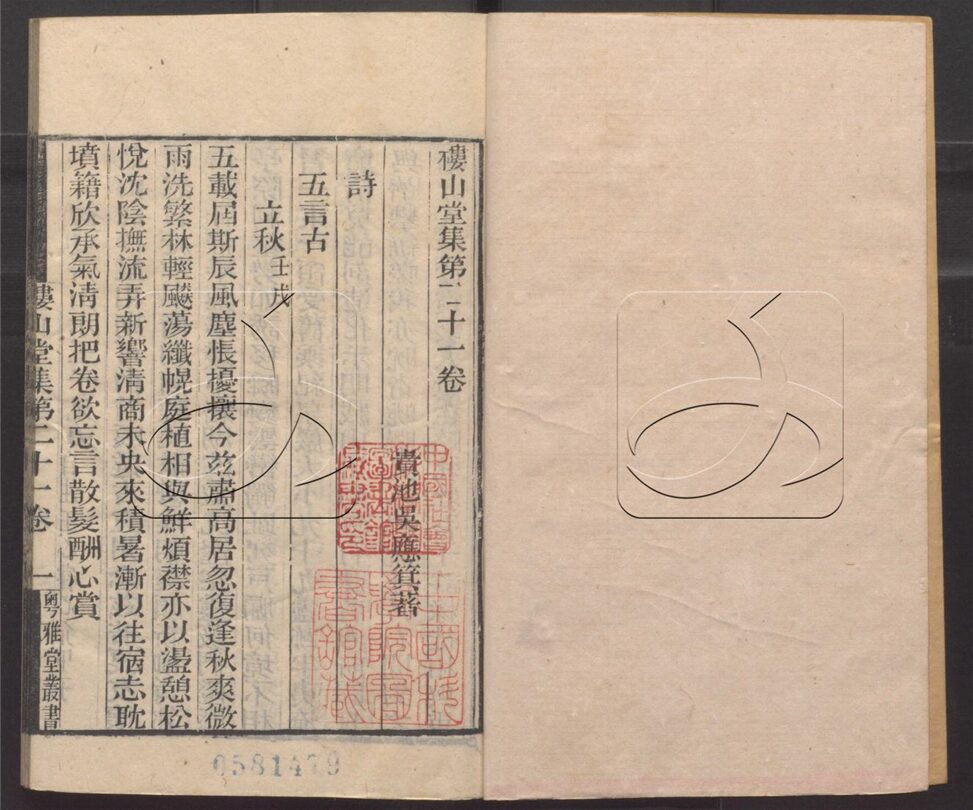 樓山堂集第二十一卷
貴池吳應箕著
詩
五言古
立秋壬戌
五載屆斯辰風塵悵擾攘今玆肅高居忽復逢秋爽微
雨洗繁林輕颸蕩纖幌庭植相與鮮煩襟亦以盪憩松
悅沈陰撫流弄新響清商未央來積暑漸以往宿志耽
墳籍欣承氣淸朗把卷欲忘言散髮酬心賞
樓山堂集第二十一卷 一 粵雅堂叢書
0581479